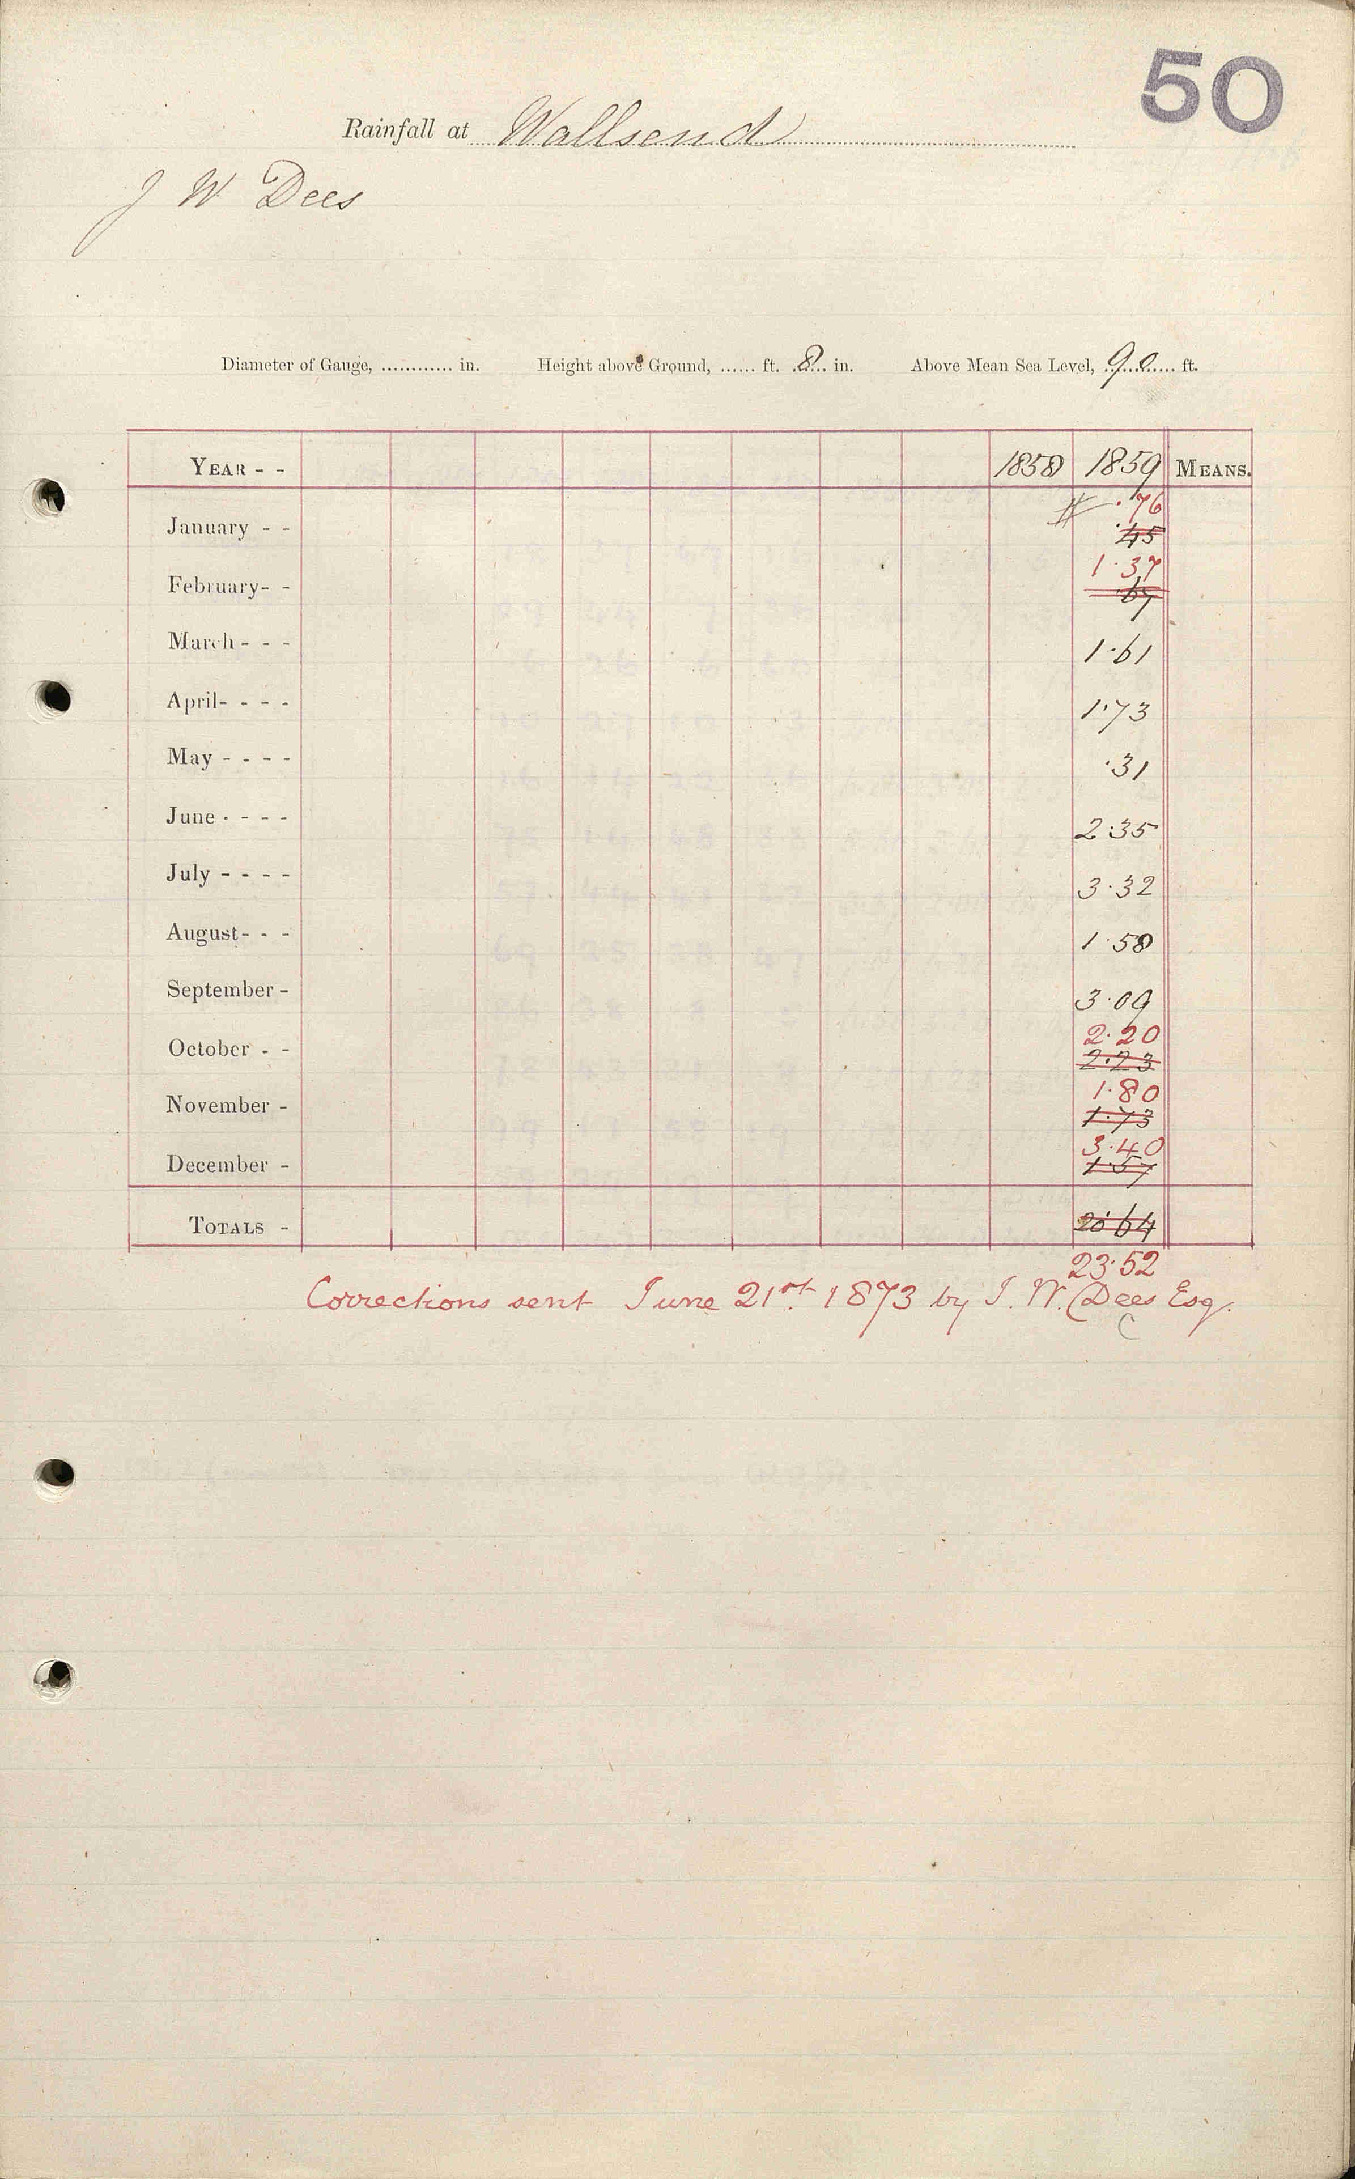 50
Rainfall at Wallsend
J W Dees
Diameter of Gauge, ............ in. Height above Ground, ...... ft. 8 in. Above Mean Sea Level, 90 ft.
YEAR - - 1858 1859 MEANS.
# .76
January - - .45
1.37
February- - .67
March - - - 1.61
April- - - - 1.73
May - - - - .31
June - - - - 2.35
July - - - - 3.32
August- - - 1.58
September - 3.09
2.20
October - - 2.23
1.80
November - 1.73
3.40
December - 1.57
TOTALS - 20.64
23.52
Corrections sent June 21st 1873 by J. W. Dees Esq.